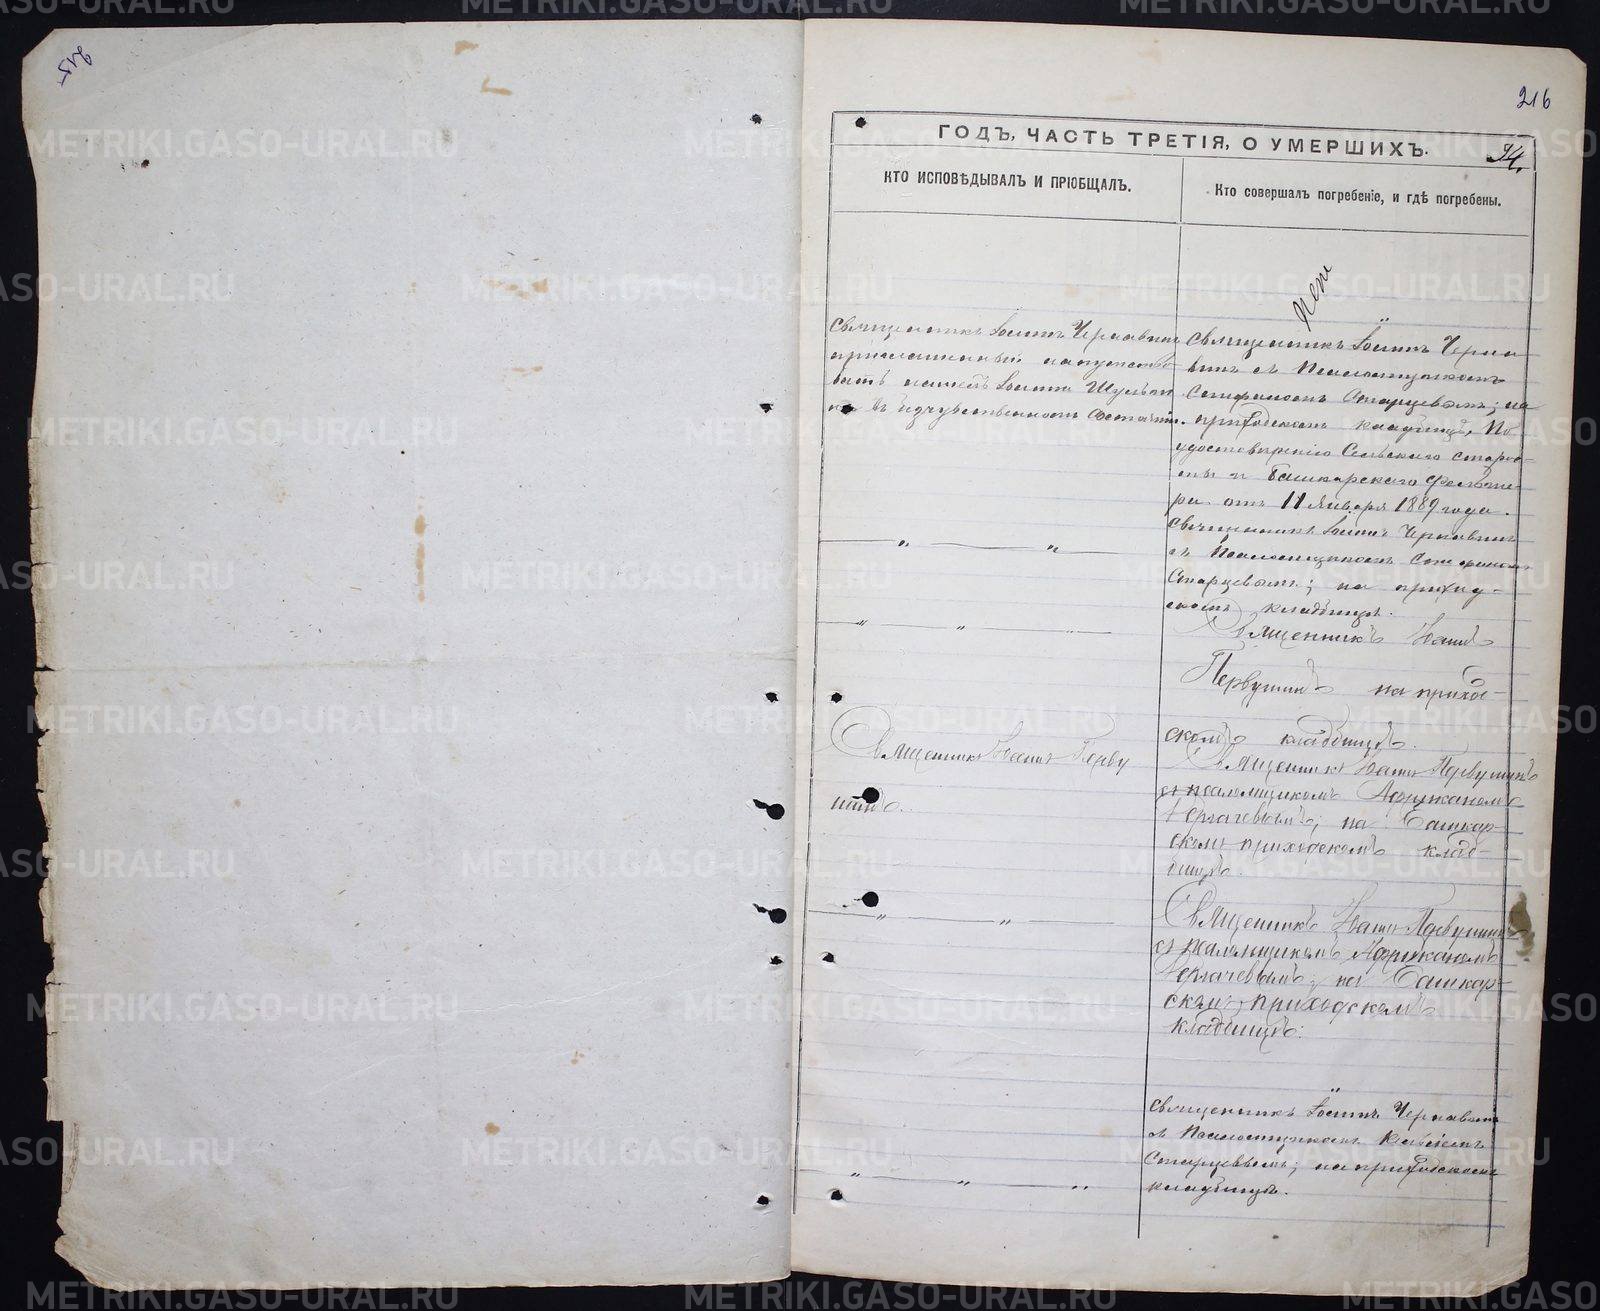 215
216
ГОДЪ, ЧАСТЬ ТРЕТІЯ, О УМЕРШИХЪ.
94.
КТО ИСПОВѢДЫВАЛЪ И ПРІОБЩАЛЪ.
Кто совершалъ погребеніе, и гдѣ погребены.
Священникъ Іоаннъ Чернавинъ
приглашенный напутство-
вать
въ безчувственномъ состояніи.
Священникъ Іоаннъ Черна-
винъ съ Псаломщикомъ
Стефаномъ Старцевымъ; на
приходскомъ кладбищѣ, По
удостовѣренію Сельскаго старос-
ты и Башкарскаго Фельдше-
ра отъ 11 Января 1889 года.
Священникъ Іоаннъ Чернавинъ
съ Псаломщикомъ Стефаномъ
Старцевымъ; на приход-
скомъ кладбищѣ.
Священникъ Іоаннъ
Первушинъ на приход-
скомъ кладбищѣ.
Священникъ Іоаннъ Перву
шинъ.
Священникъ Іоаннъ Первушинъ
съ псаломщикомъ Африканомъ
на Башкар-
скомъ приходскомъ клад-
бищѣ.
Священникъ Іоаннъ Первушинъ
съ псаломщикомъ Африканомъ
на Башкар-
скомъ приходскомъ
кладбищѣ.
Священникъ Іоаннъ Чернавинъ
съ Псаломщикомъ
Старцевымъ; на приходскомъ
кладбищѣ.
METRIKI.GASO-URAL.RU